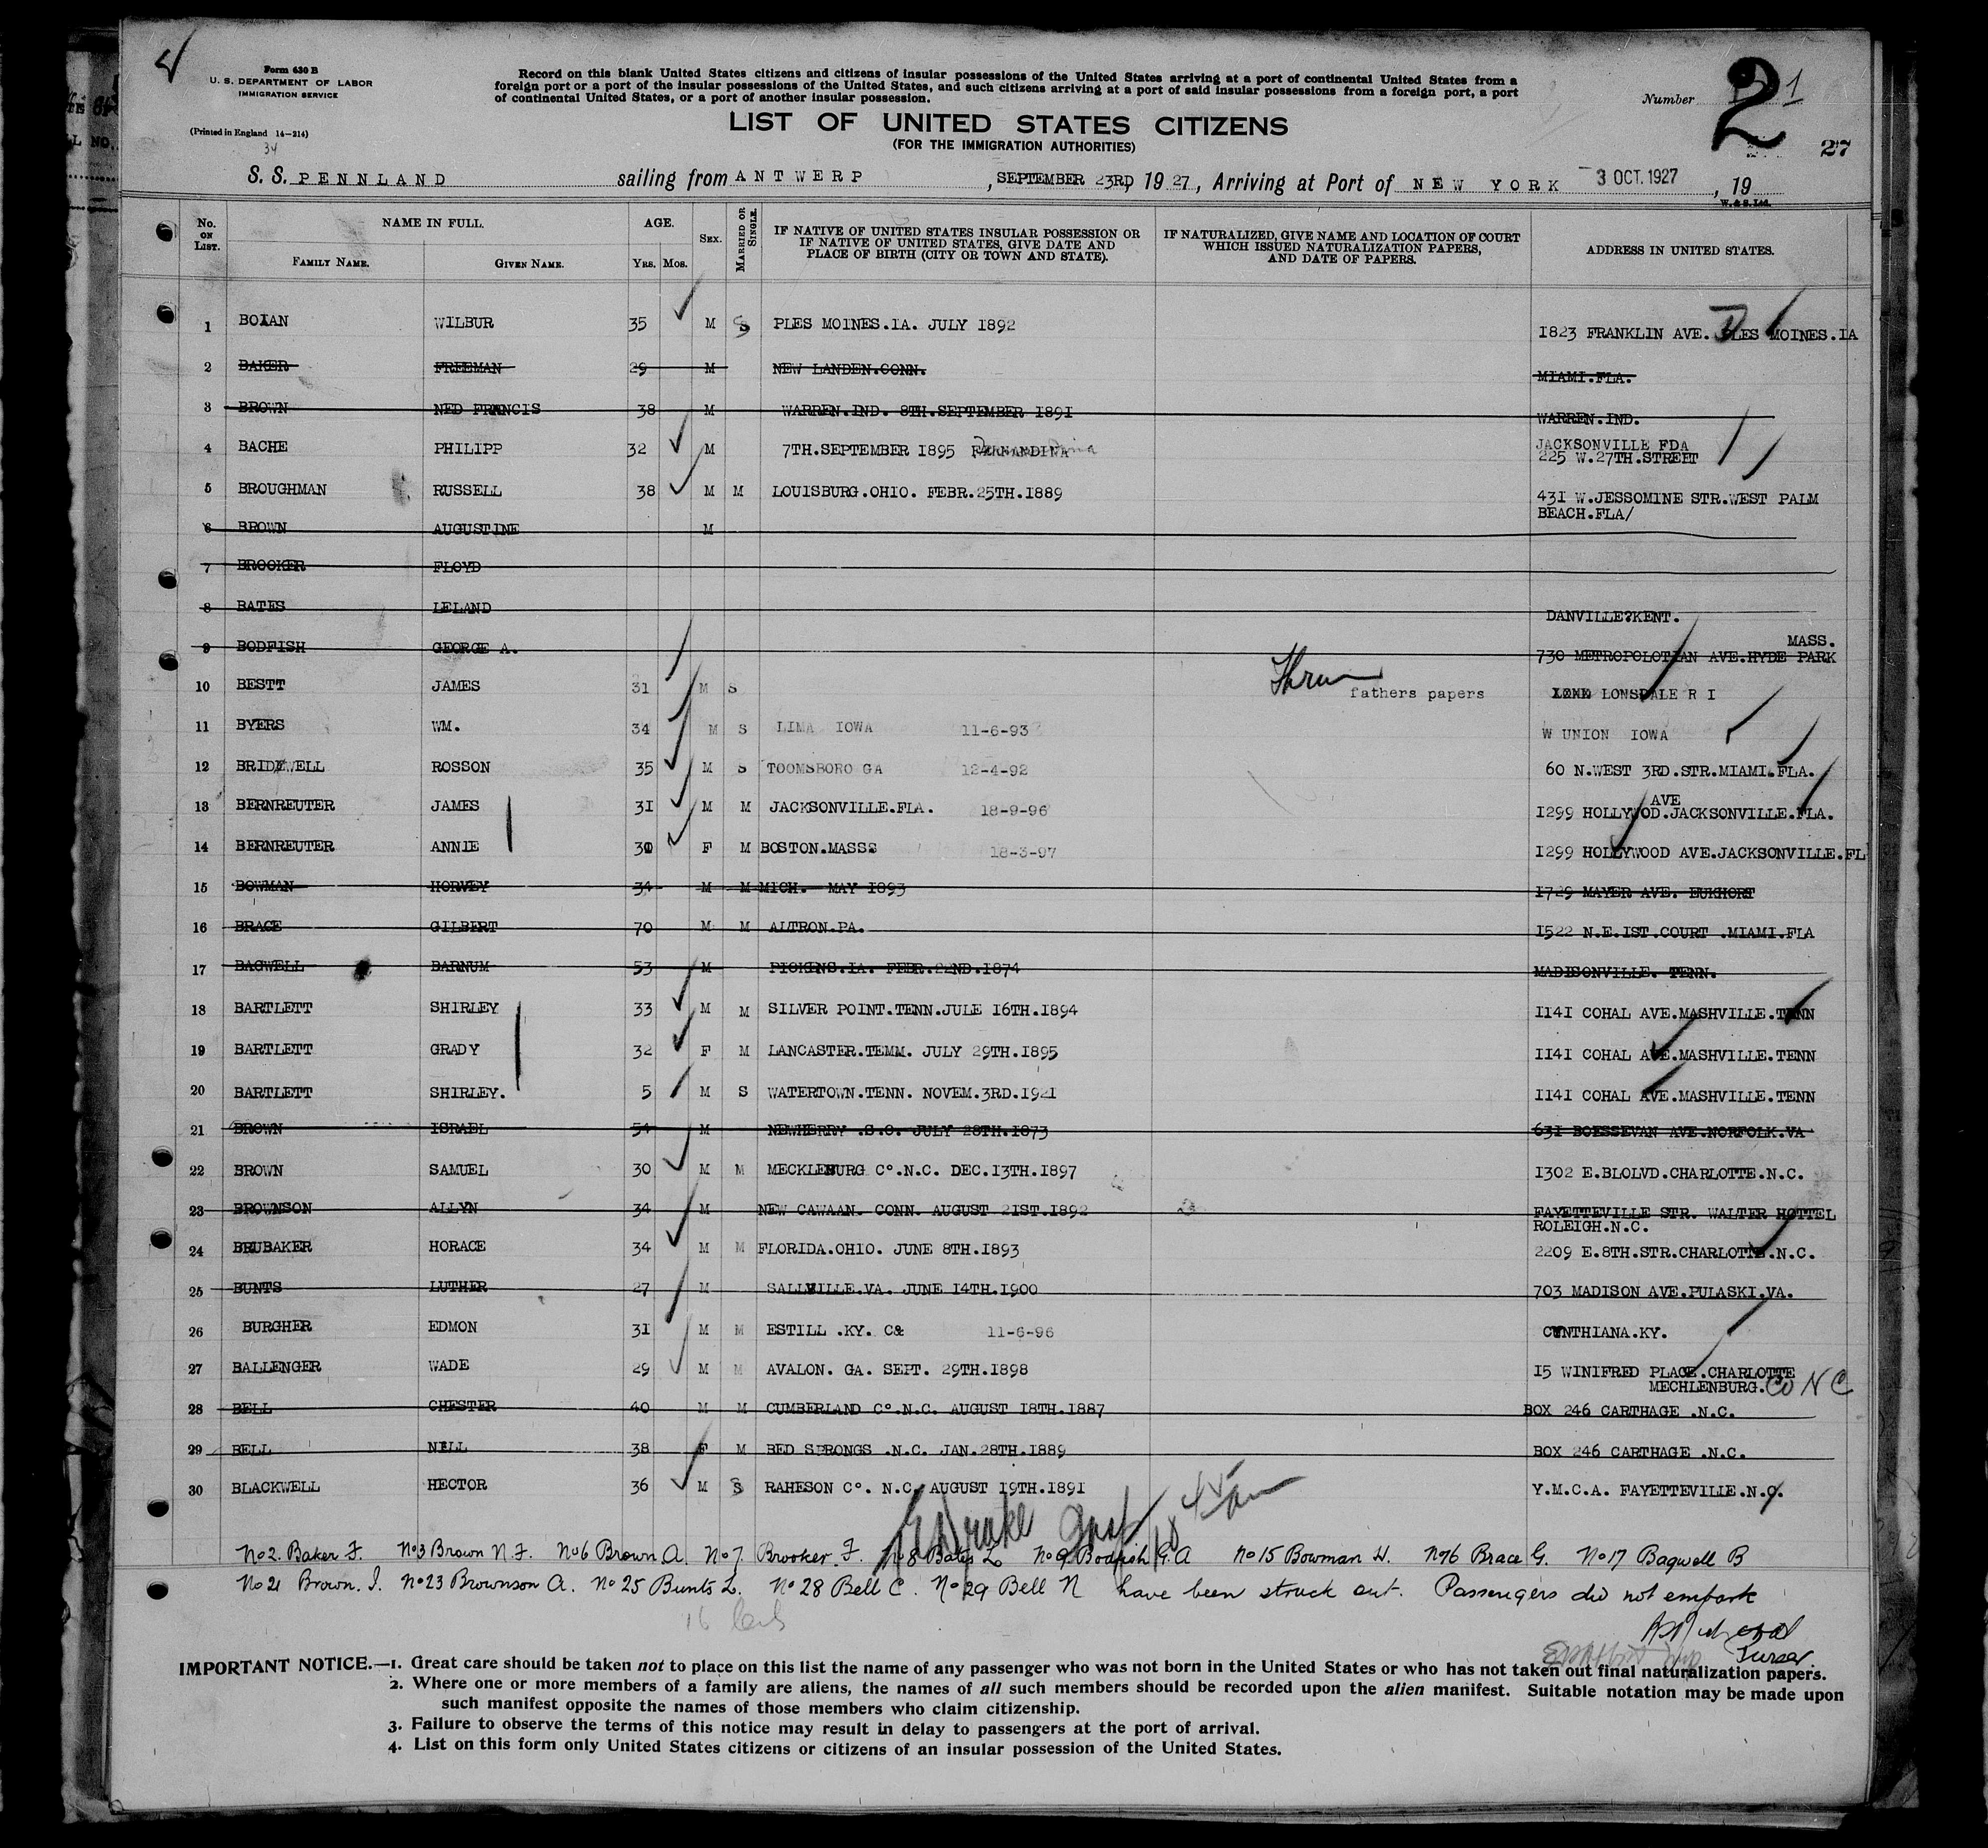 Form 630 B
U. S. DEPARTMENT OF LABOR
IMMIGRATION SERVICE
(Printed in England 14—214)
34
Record on this blank United States citizens and citizens of insular possessions of the United States arriving at a port of continental United States from a
foreign port or a port of the insular possessions of the United States, and such citizens arriving at a port of said insular possessions from a foreign port, a port
of continental United States, or a port of another insular possession.
Number 2 1
27
LIST OF UNITED STATES CITIZENS
(FOR THE IMMIGRATION AUTHORITIES)
S. S. PENNLAND sailing from ANTWERP, SEPTEMBER 23RD, 1927, Arriving at Port of NEW YORK 3 OCT. 1927, 19
W. & S. Ltd.
No. ON LIST. NAME IN FULL. AGE. SEX. MARRIED OR SINGLE. IF NATIVE OF UNITED STATES INSULAR POSSESSION OR IF NATIVE OF UNITED STATES, GIVE DATE AND PLACE OF BIRTH (CITY OR TOWN AND STATE). IF NATURALIZED, GIVE NAME AND LOCATION OF COURT WHICH ISSUED NATURALIZATION PAPERS, AND DATE OF PAPERS. ADDRESS IN UNITED STATES.
FAMILY NAME. GIVEN NAME. YRS. MOS.
1 BOIAN WILBUR 35 M S PLES MOINES.IA. JULY 1892 1823 FRANKLIN AVE. DLES MOINES.IA
2 BAKER FREEMAN 29 M NEW LANDEN.CONN. MIAMI.FLA.
3 BROWN NED FRANCIS 38 M WARREN.IND. 8TH.SEPTEMBER 1891 WARREN.IND.
4 BACHE PHILIPP 32 M 7TH.SEPTEMBER 1895 FERNANDINA JACKSONVILLE FDA
225 W.27TH.STREET
5 BROUGHMAN RUSSELL 38 M M LOUISBURG.OHIO. FEBR.25TH.1889 431 W.JESSOMINE STR.WEST PALM
BEACH.FLA/
6 BROWN AUGUSTINE M
7 BROOKER FLOYD
8 BATES LELAND DANVILLE?KENT.
9 BODFISH GEORGE A. 730 METROPOLOTIAN AVE.HYDE PARK MASS.
10 BESTT JAMES 31 M S Thru fathers papers LONSDALE R I
11 BYERS WM. 34 M S LIMA IOWA 11-6-93 W UNION IOWA
12 BRIDEWELL ROSSON 35 M S TOOMSBORO GA 12-4-92 60 N.WEST 3RD.STR.MIAMI.FLA.
13 BERNREUTER JAMES 31 M M JACKSONVILLE.FLA. 18-9-96 1299 HOLLYWOOD.JACKSONVILLE.FLA. AVE
14 BERNREUTER ANNIE 30 F M BOSTON.MASSS 18-3-97 1299 HOLLYWOOD AVE.JACKSONVILLE.FL
15 BOWMAN HORVEY 34 M M MICH. MAY 1893 1729 MAYER AVE. EUKHORT
16 BRACE GILBERT 70 M M ALTRON.PA. 1522 N.E.IST.COURT .MIAMI.FLA
17 BAGWELL BARNUM 53 M PICKINS.IA. FEBR.22ND.1874 MADISONVILLE. TENN.
18 BARTLETT SHIRLEY 33 M M SILVER POINT.TENN.JULE 16TH.1894 1141 COHAL AVE.MASHVILLE.TENN
19 BARTLETT GRADY 32 F M LANCASTER.TEMM. JULY 29TH.1895 1141 COHAL AVE.MASHVILLE.TENN
20 BARTLETT SHIRLEY. 5 M S WATERTOWN.TENN. NOVEM.3RD.1921 1141 COHAL AVE.MASHVILLE.TENN
21 BROWN ISRAEL 54 M NEWHERRY .S.C. JULY 28TH.1873 631 BOESSEVAN AVE.NORFOLK.VA
22 BROWN SAMUEL 30 M M MECKLENBURG Co.N.C. DEC.13TH.1897 1302 E.BLOLVD.CHARLOTTE.N.C.
23 BROWNSON ALLYN 34 M NEW CAWAAN. CONN. AUGUST 21ST.1892 FAYETTEVILLE STR. WALTER HOTTEL
ROLEIGH.N.C.
24 BRUBAKER HORACE 34 M M FLORIDA.OHIO. JUNE 8TH.1893 2209 E.8TH.STR.CHARLOTTE.N.C.
25 BUNTS LUTHER 27 M SALLVILLE.VA. JUNE 14TH.1900 703 MADISON AVE.PULASKI.VA.
26 BURGHER EDMON 31 M M ESTILL .KY. C& 11-6-96 CYNTHIANA.KY.
27 BALLENGER WADE 29 M M AVALON. GA. SEPT. 29TH.1898 15 WINIFRED PLACE.CHARLOTTE
MECHLENBURG. Co N C
28 BELL CHESTER 40 M M CUMBERLAND Co.N.C. AUGUST 18TH.1887 BOX 246 CARTHAGE .N.C.
29 BELL NELL 38 F M BED SPRONGS .N.C. JAN.28TH.1889 BOX 246 CARTHAGE .N.C.
30 BLACKWELL HECTOR 36 M S RAHESON Co. N.C. AUGUST 19TH.1891 Y.M.C.A. FAYETTEVILLE.N.C.
No 2. Baker F. No 3 Brown N.F. No 6 Brown A. No 7. Brooker F. No 8 Bates L No 9 Bodfish G.A No 15 Bowman H. No 16 Brace G. No 17 Bagwell B
No 21 Brown. I. No 23 Brownson A. No 25 Bunts L. No 28 Bell C. No 29 Bell N have been struck out. Passengers did not embark
Purser.
IMPORTANT NOTICE.—1. Great care should be taken not to place on this list the name of any passenger who was not born in the United States or who has not taken out final naturalization papers.
2. Where one or more members of a family are aliens, the names of all such members should be recorded upon the alien manifest. Suitable notation may be made upon
such manifest opposite the names of those members who claim citizenship.
3. Failure to observe the terms of this notice may result in delay to passengers at the port of arrival.
4. List on this form only United States citizens or citizens of an insular possession of the United States.